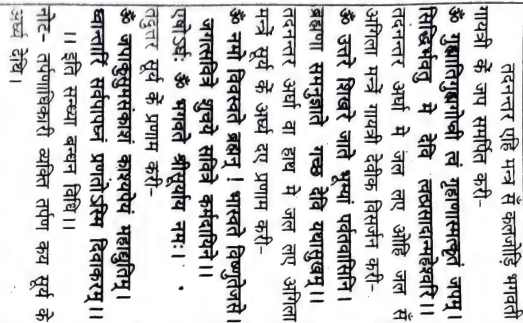 तदनन्तर एहि मन्त्र सँ कलजोड़ि भगवती
गायत्री कें जप समर्पित करी-
ॐ गुह्यातिगुह्यगोप्त्री त्वं गुहाणास्मत्कृतं जपम्।
सिद्धिर्भवतु मे देवि त्वत्प्रसादान्महेश्वरि।।
तदनन्तर अर्घा मे जल लए ओहि जल सँ
अगिला मन्त्रें गायत्री देवीक विसर्जन करी-
ॐ उत्तरे शिखरे जाते भूम्यां पर्वतवासिनि।
ब्रह्मणा समनुज्ञाते गच्छ देवि यथासुखम्।।
तदनन्तर अर्घा वा हाथ मे जल लए अगिला
मन्त्रें सूर्य कें अर्घ्य दए प्रणाम करी-
ॐ नमो विवस्वते ब्रह्मन् ! भास्वते विष्णुतेजसे।
जगत्सवित्रे शुचये सवित्रे कर्मदायिने।।
एषोऽर्घः ॐ भगवते श्रीसूर्याय नमः।
तदुत्तर सूर्य कें प्रणाम करी-
ॐ जपाकुसुमसंकाशं काश्यपेयं महाद्युतिम्।
ध्वान्तारिं सर्वपापघ्नं प्रणतोऽस्मि दिवाकरम्।।
।। इति सन्ध्या वन्दन विधि।।
नोट- तर्पणाधिकारी व्यक्ति तर्पण कय सूर्य कें
अर्घ्य देथि।